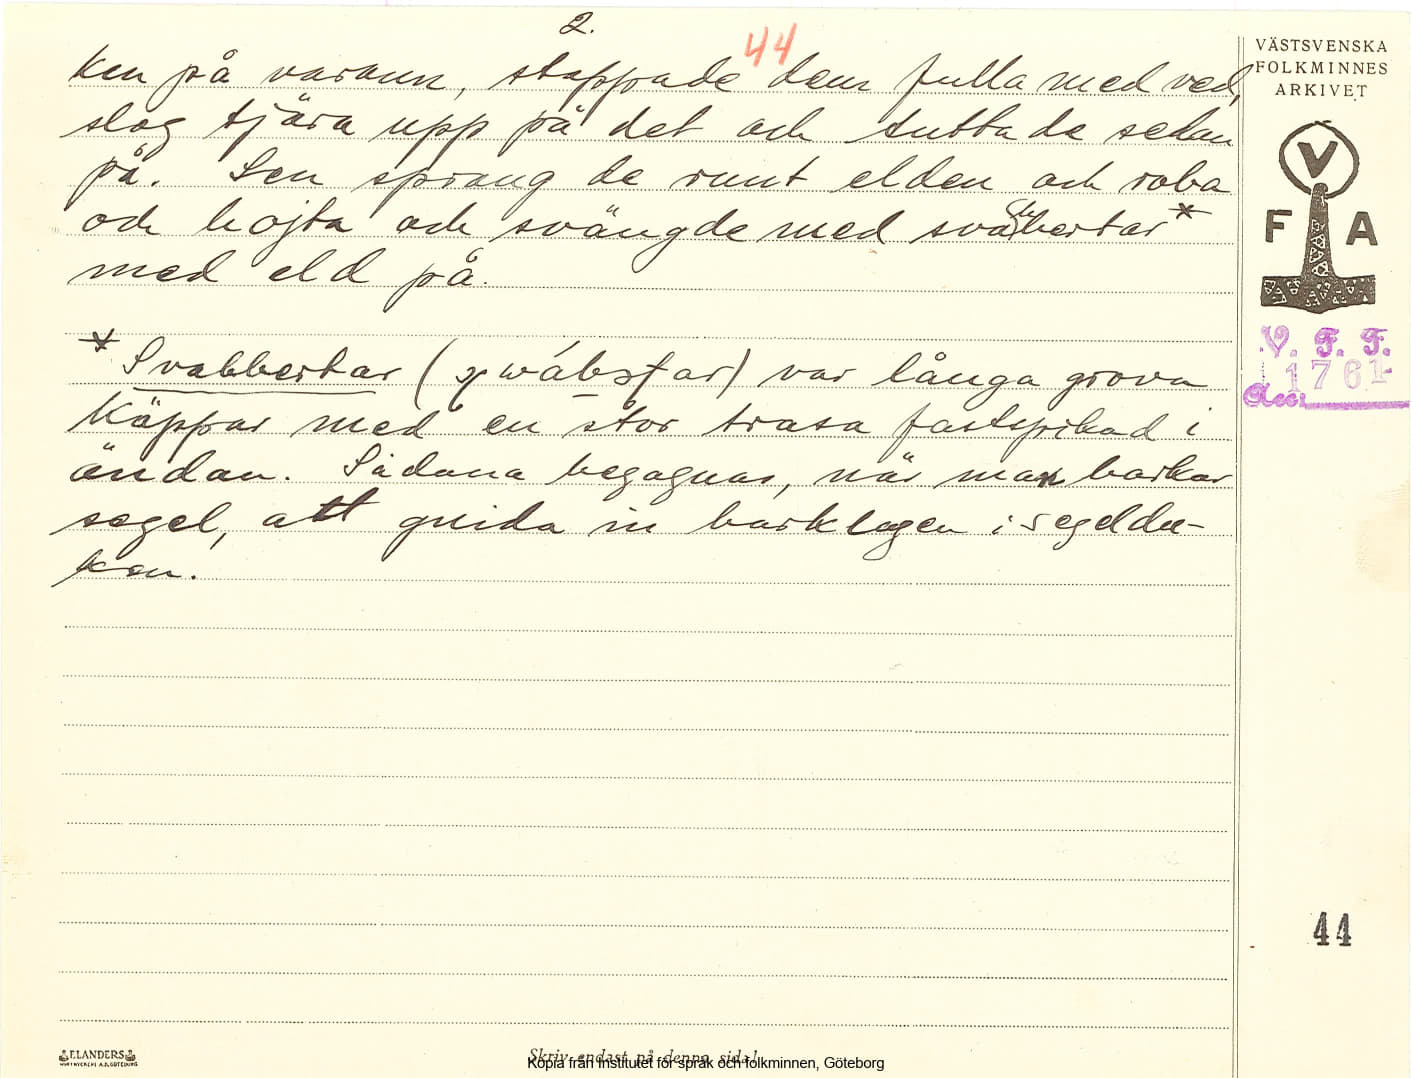 2.
44
ken på varann, stoppade dem fulla med ved,
slog tjära upp på det och tuttade sedan
på. Sen sprang de runt elden och roba
och hojta och svängde med svabbertar*
med eld på.
* Svabbertar ( ) var långa grova
käppar med en stor trasa fastspikad i
ändan. Sådana begagnas, när man barkar
segel, att gnida in barklagen i segeldu-
ken.
VÄSTSVENSKA
FOLKMINNES
ARKIVET
V
F A
V. F. F.
1761
Acc.
44
ELANDERS
Skriv endast på denna sida!
Kopia från Institutet för språk och folkminnen, Göteborg